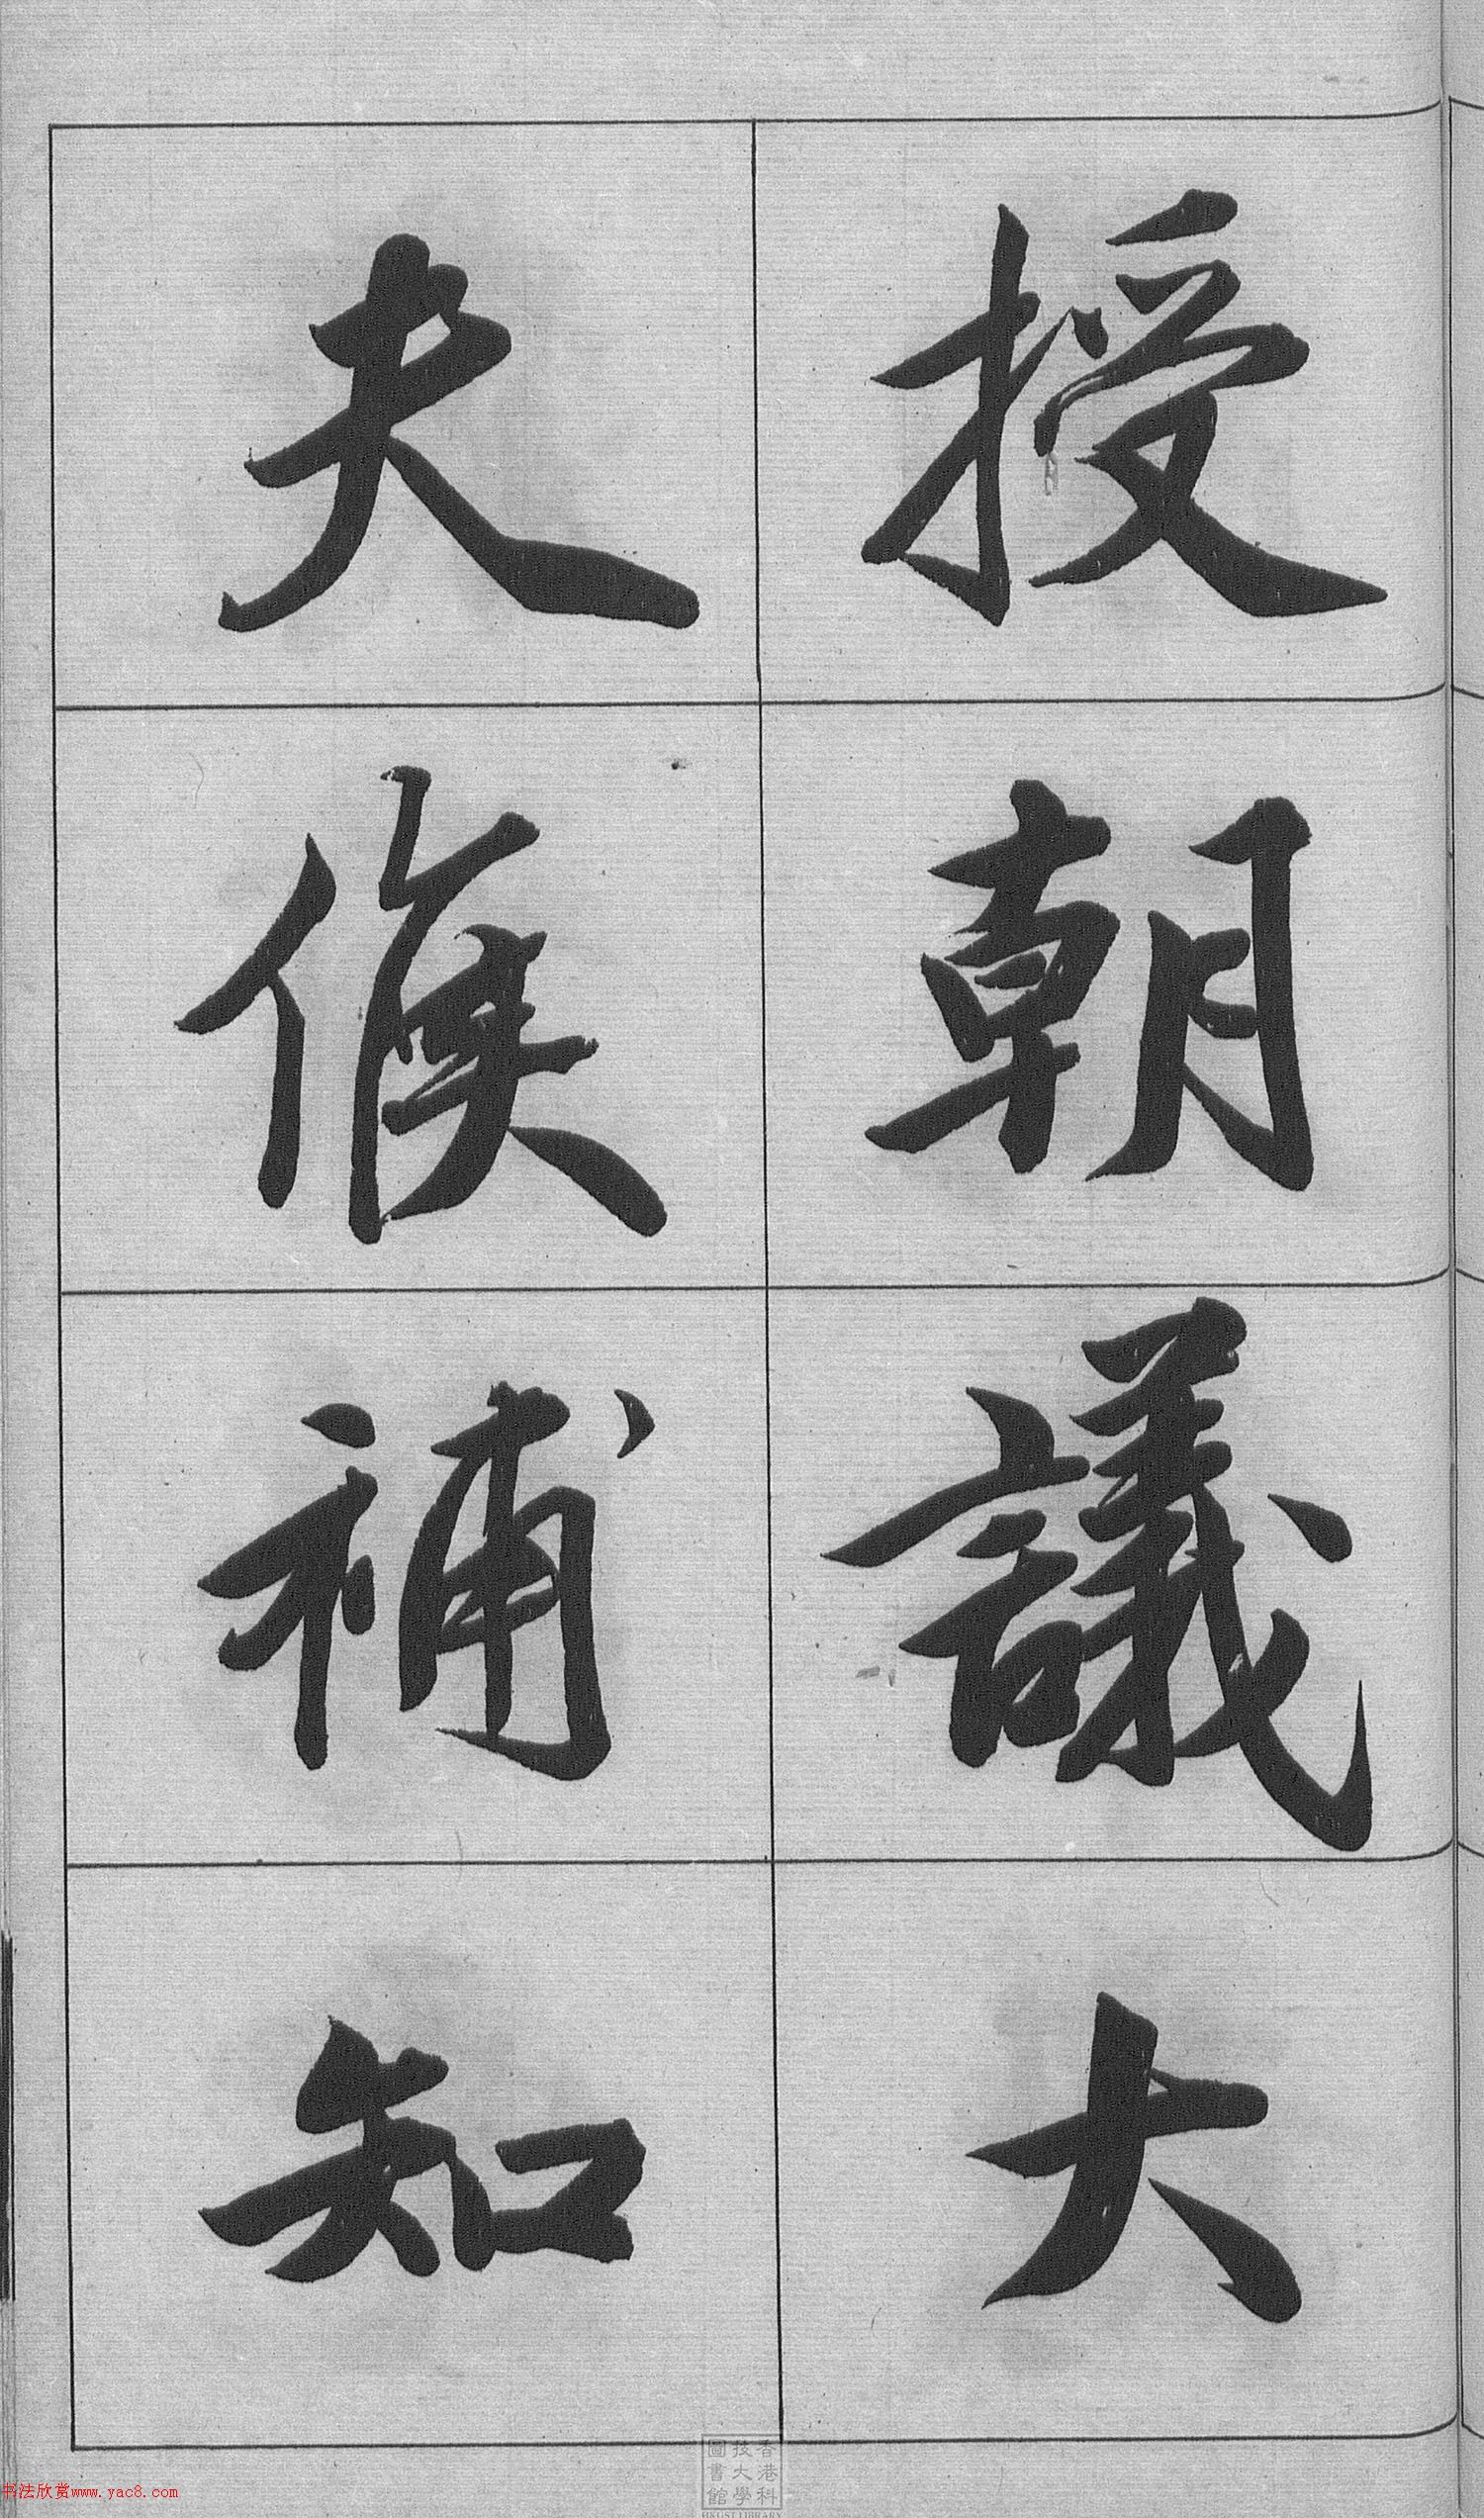 授朝議大
夫候補知
書法欣赏www.yac8.com
香港科
技大學
圖書館
HKUST LIBRARY